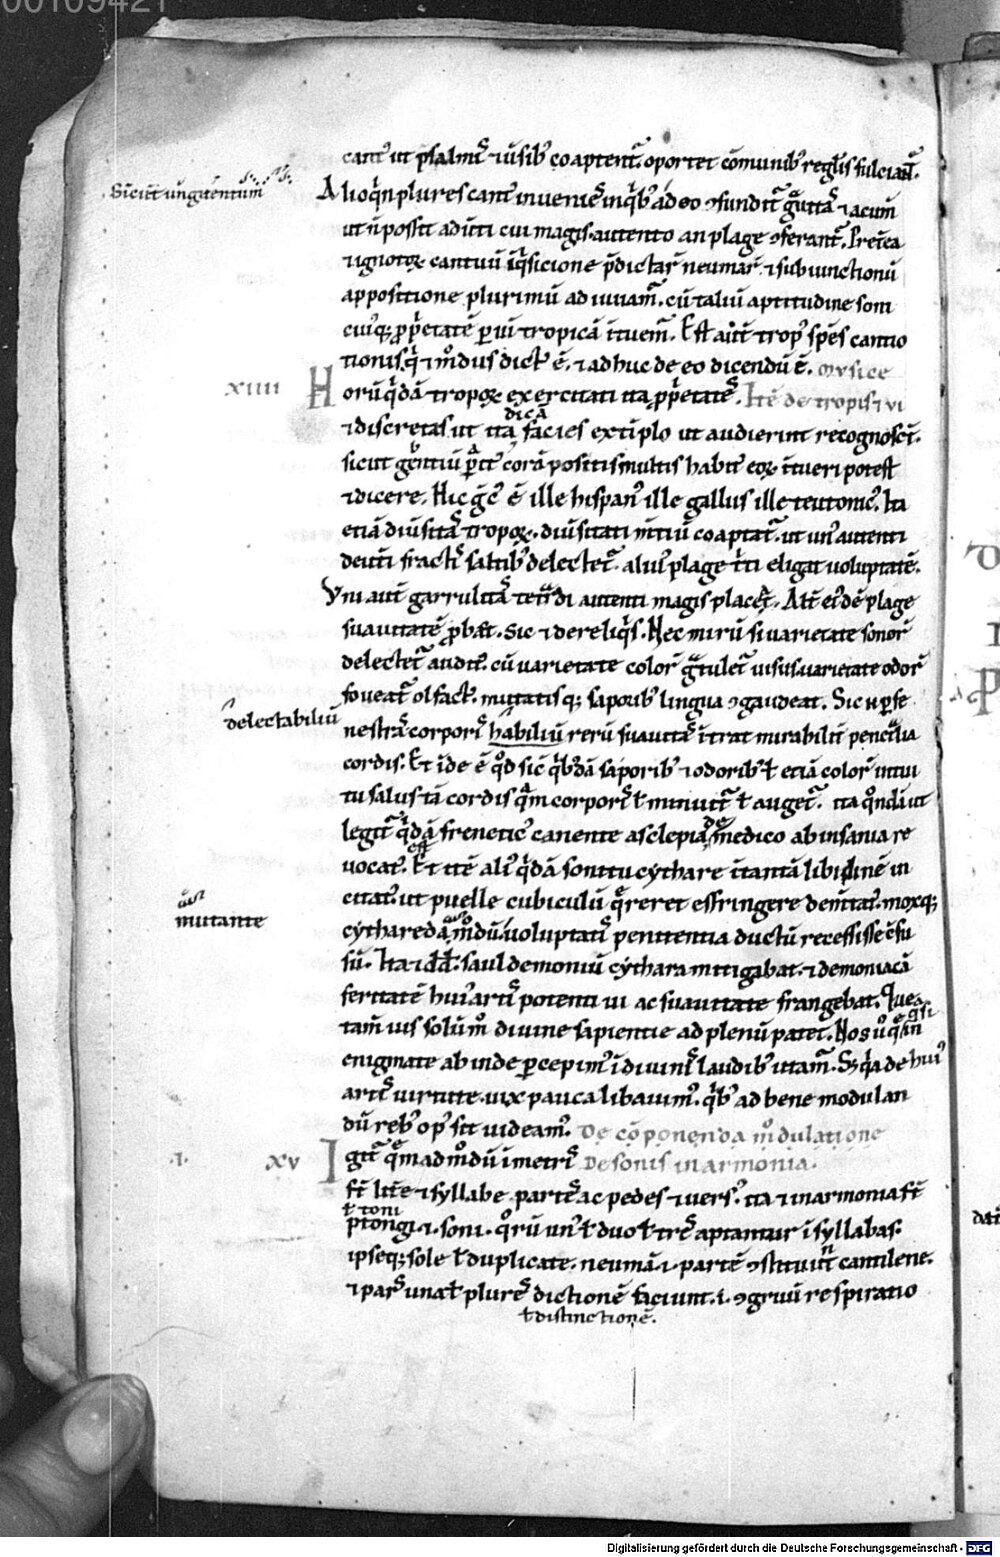 00109421
cant᷒ ut psalmis uersib᷒ coaptent᷑. oportet cōmunib᷒ regulis fulciant᷑.
Sicut unguentum
Alioqͥn plures cant᷒ inuenies inqͥb᷒ adeo ꝯfundit᷑ grauitas ⁊ acum
ut n̄ possit aduerti cui magis. autento an plage ꝯferant᷑. Preterea
⁊ ignotoꝝ cantuū inqͥsicione p̄dictaꝝ neumaꝝ ⁊ subiunctionū
appositione plurimū adiuuam᷒. cū taliū aptitudine soni
cuiusqꝫ pprietatē ꝑ uim tropicā intuem᷑. Est aūt trop᷒ sp̄es cantio
tionis. qͥ ⁊ mod᷒ dict᷒ ē. ⁊ adhuc de eo dicendū ē. Mvsice
xiiii Horū qͥdā tropoꝝ exercitati ita pprietates. Itē de tropis ⁊ vi
⁊ discretas ut ita dicā facies extiplo ut audierint recognoscūt.
sicut gentiū perit᷒ corā positis multis habit᷒ eoꝝ intueri potest
⁊ dicere. Hic grec᷒ ē ille hispan᷒ ille gallus ille teutonic᷒. Ita
etiā diuersitas tropoꝝ. diuersitati mentiū coaptat᷑. ut un᷒ autenti
deuti fractis saltib᷒ delectet᷑. alius plage triti eligat uoluptatē.
Vni aut̄ garrulitas tetrardi autenti magis placet. Alt᷒ ei᷒dē plage
suauitatē ꝓbat. Sic ⁊ de reliqͥs. Nec mirū si uarietate sonoꝝ
delectet᷑ audit᷒. cū uarietate coloꝝ gratulet᷑ uisus. uarietate odoꝝ
foueat᷑ olfact᷒. mutatisqꝫ saporib᷒ lingua ꝯgaudeat. Sic ꝑ fe
delectabiliū
nestrā corporis habiliū rerū suauitas intrat mirabilit᷒ penetralia
cordis. Et inde ē qd̄ sic qͥb᷒dā saporib᷒ ⁊ odorib᷒ ł etiā coloꝝ intui
tu salus tā cordis qͣm corporis ł minuit᷑ ł auget᷑. ita qͦndā ut
legit᷑ qͥdā frenetic᷒ canente asclepiade medico ab insania re
uocat᷒ est. Et itē ali᷒ qͥdā sonitu cythare intantā libidinē in
citat᷒. ut puelle cubiculū qͣreret effringere dementat᷒. moxqꝫ
mutante
cytharedā modū. uoluptatis penitentia ductū recessisse ꝯfu
sū. Ita ⁊ dd̄. saul demoniū cythara mitigabat. ⁊ demoniacā
feritatē hui᷒ artis potenti ui ac suauitate frangebat. Que
tam̄ uis soli m̊ diuine sapientie ad plenū patet. Nos uͦ qͣsi in
enigmate ab inde ꝑcepim᷒ in diuinis laudib᷒ utam᷑. Sꝫ qͥa de hui᷒
artis uirtute. uix pauca libauim᷒. qͥb᷒ ad bene modulan
dū reb᷒ op᷒ sit uideam᷒. De cōponenda modulatione
.i. xv Igit᷑ qͣmadmodū in metris De sonis in armonia.
st̄ litt᷒e ⁊ syllabe. partes ac pedes ⁊ uers᷒. ita ⁊ in armonia st̄
ł toni
ptongi .i. soni. qͦrū un᷒ ł duo ł tres aptantur in syllabas.
ipseqꝫ sole ł duplicate. neumā .i. partē ꝯstituunt cantilene.
⁊ pars una ł plures dictionē faciunt .i. ꝯgruū respiratio
ł distinctionē.
Digitalisierung gefördert durch die Deutsche Forschungsgemeinschaft - DFG